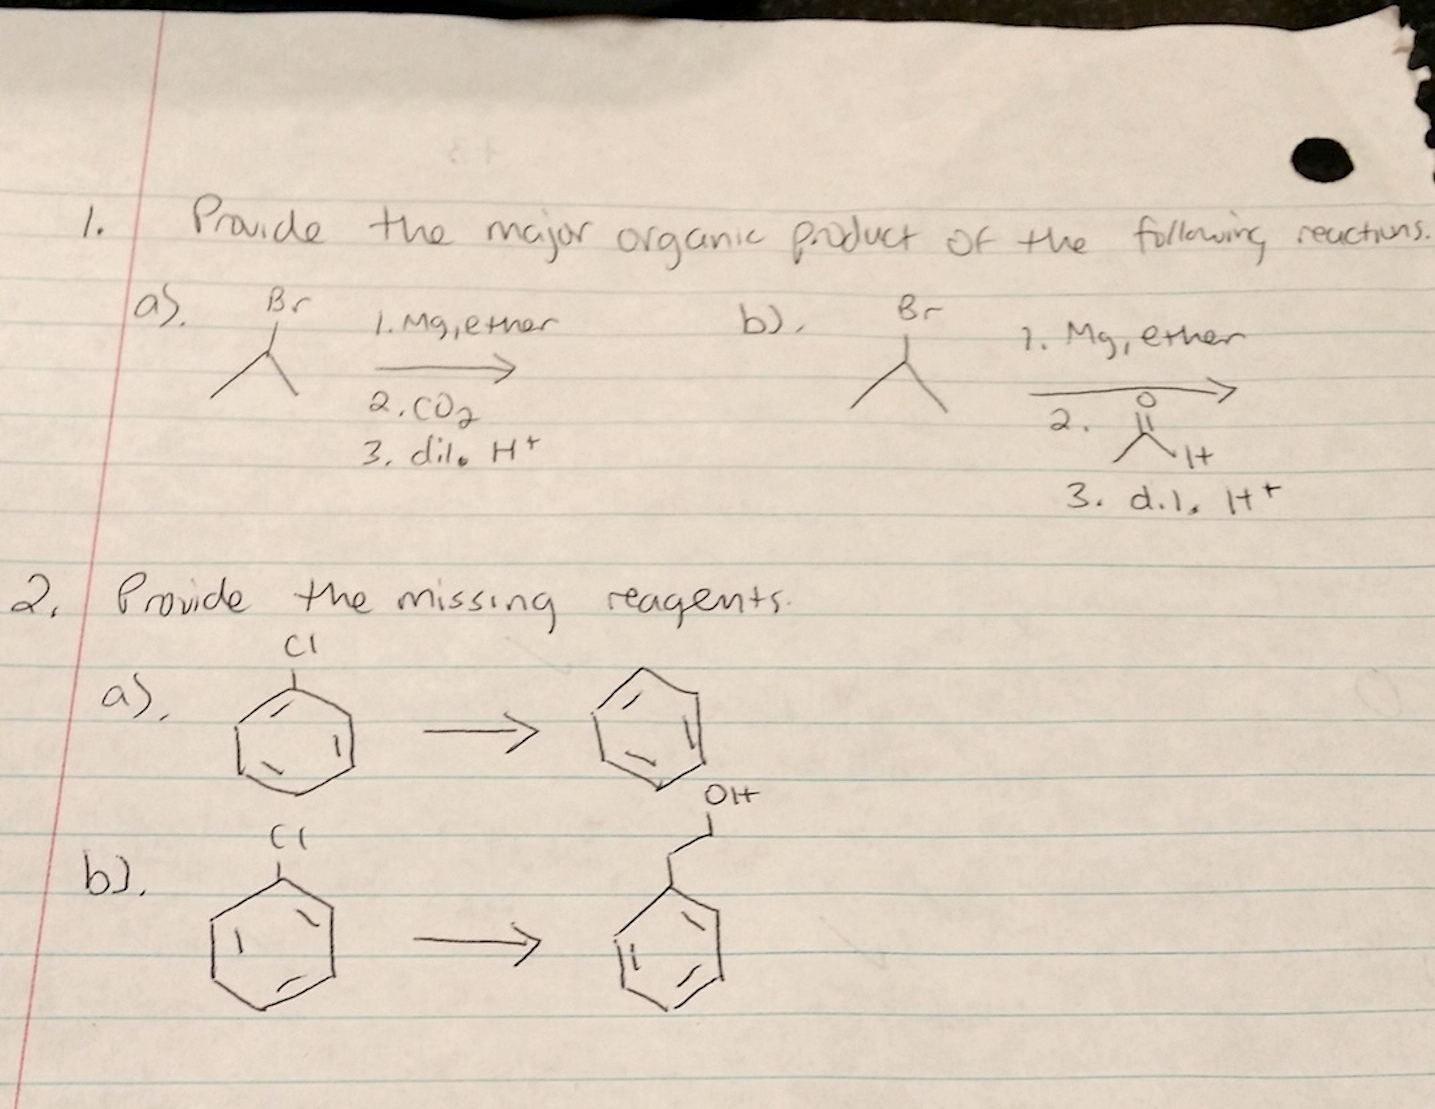 1. Provide the major organic product of the following reactions.
a). Br 1. Mg, ether
2. CO2
3. dil. H+
b). Br 1. Mg, ether
2. O H
3. dil. H+
2. Provide the missing reagents.
a). Cl
b). Cl OH